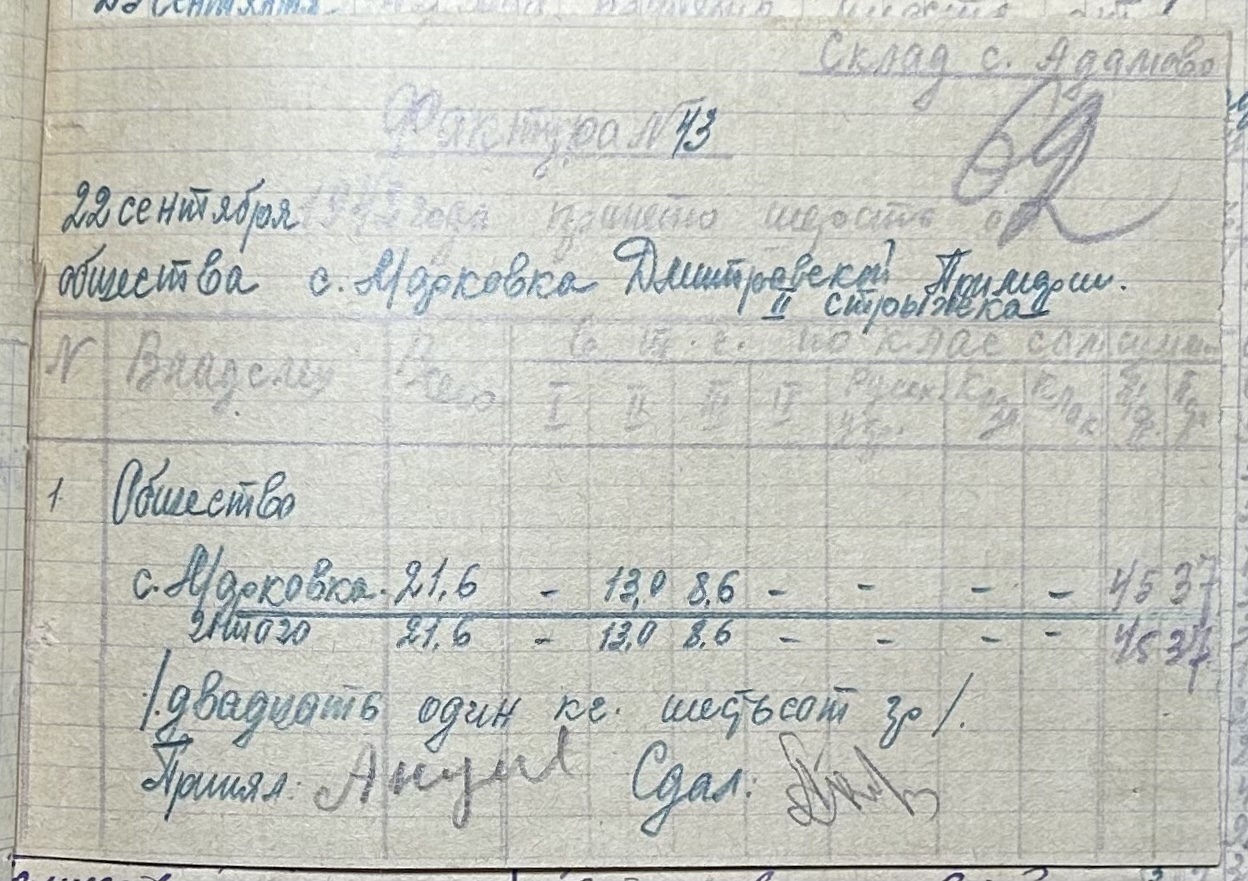 Склад с. Адамово
Фактура N 43
62
22 сентября 1942 года принято шерсть от
общества с. Марковка Дмитровской Примарии.
II стрыжка
N Владелец Всего В т. ч. по клас
I II III IV
1. Общество
с. Марковка. 21,6 - 13,0 8,6 - - - - 45 37
Итого 21,6 - 13,0 8,6 - - - - 45 37
/. двадцать один кг. шестьсот гр /.
Принял: Сдал: